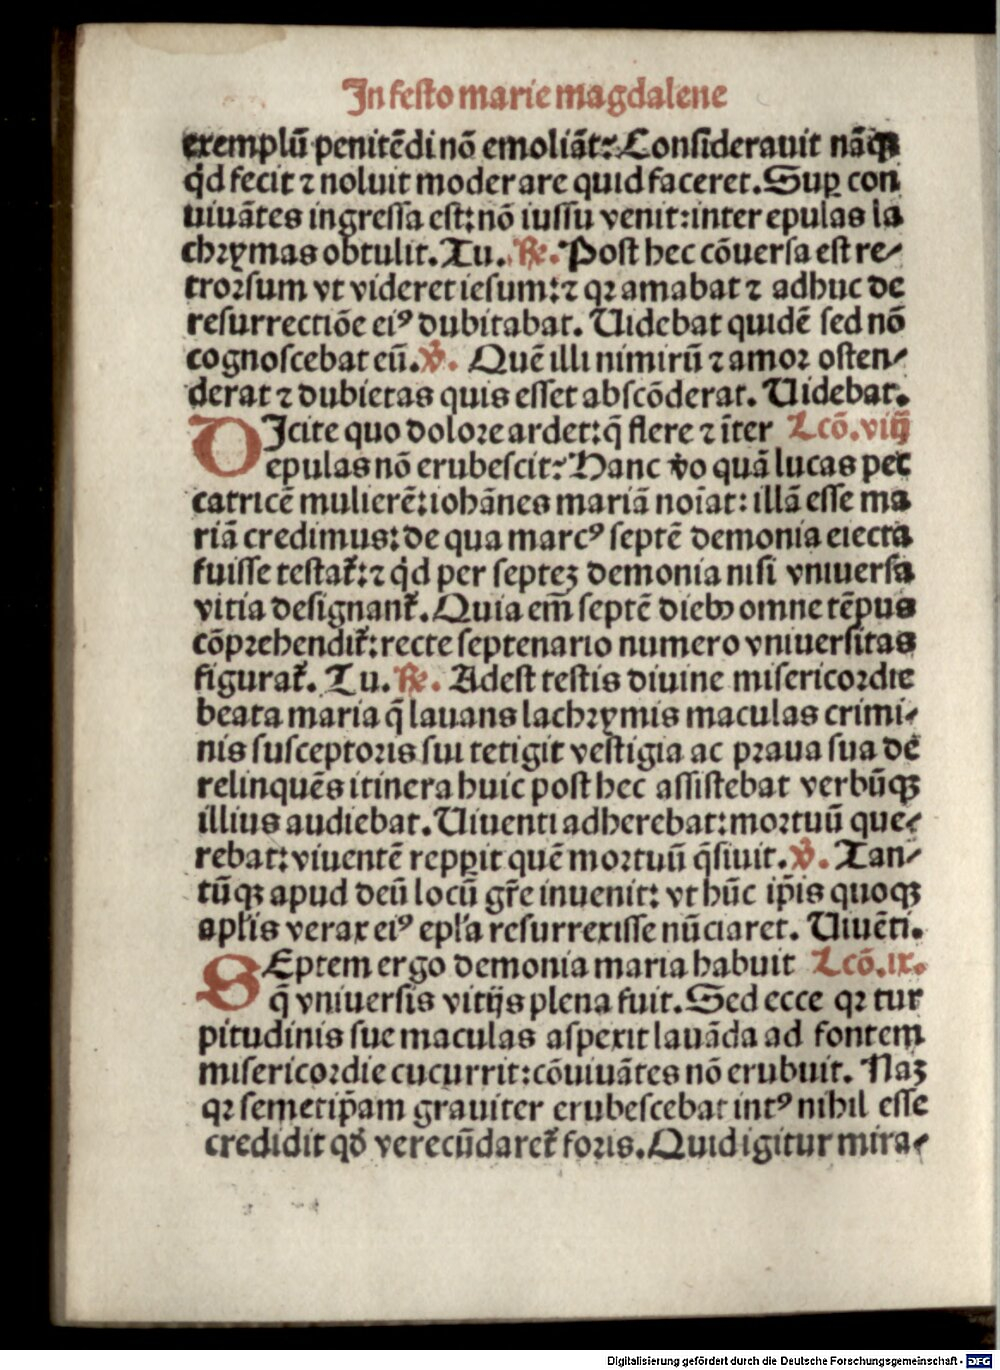 In festo marie magdalene
exemplū penitēdi nō emoliāt: Considerauit nāqꝫ
qd̓ fecit ⁊ noluit moderare quid faceret. Suꝑ con
uiuātes ingressa est: nō iussu venit: inter epulas la
chrymas obtulit. Tu. ℟. Post hec cōuersa est re⸗
trorsum vt videret iesum: ⁊ qꝛ amabat ⁊ adhuc de
resurrectiōe eiꝰ dubitabat. Uidebat quidē sed nō
cognoscebat eū. ℣. Quē illi nimirū ⁊ amor osten⸗
derat ⁊ dubietas quis esset abscōderat. Uidebat.
DIcite quo dolore ardet: q̄ flere ⁊ īter Lcō. viij
epulas nō erubescit: Hanc v̓o quā lucas pec
catricē mulierē: iohānes mariā noīat: illā esse ma
riā credimus: de qua marcꝰ septē demonia eiecta
fuisse testat᷑: ⁊ qd̓ per septeꝫ demonia nisi vniuersa
vitia designant᷑. Quia em̄ septē diebꝰ omne tēpus
cōprehendit᷑: recte septenario numero vniuersitas
figurat᷑. Tu. ℟. Adest testis diuine misericordie
beata maria q̄ lauans lachrymis maculas crimi⸗
nis susceptoris sui tetigit vestigia ac praua sua de
relinquēs itinera huic post hec assistebat verbūqꝫ
illius audiebat. Uiuenti adherebat: mortuū que⸗
rebat: viuentē repꝑit quē mortuū q̄siuit. ℣. Tan⸗
tūqꝫ apud deū locū gr̄e inuenit: vt hūc ip̄is quoqꝫ
apl̓is verax eiꝰ epl̓a resurrexisse nūciaret. Uiuēti.
SEptem ergo demonia maria habuit Lcō. ix.
q̄ vniuersis vitijs plena fuit. Sed ecce qꝛ tur
pitudinis sue maculas aspexit lauāda ad fontem
misericordie cucurrit: cōuiuātes nō erubuit. Naꝫ
qꝛ semetip̄am grauiter erubescebat intꝰ nihil esse
credidit qd̓ verecūdaret᷑ foris. Quid igitur mira⸗
Digitalisierung gefördert durch die Deutsche Forschungsgemeinschaft - DFG